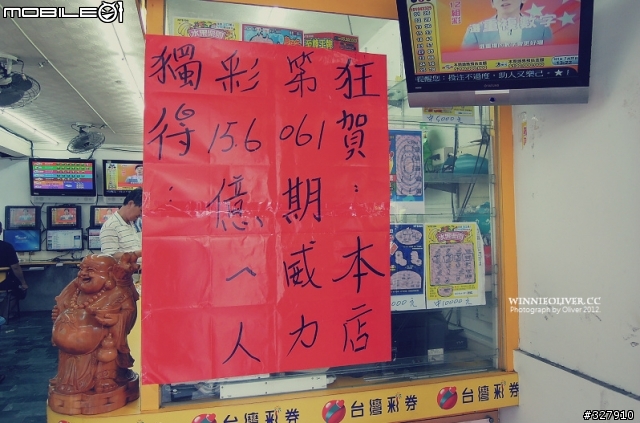 mobile01
狂賀：本店
第061期威力
彩15.6億、一人
獨得：
提醒您：投注不過度，助人又樂己。★
WINNIEOLIVER.CC
Photograph by Oliver 2012
台灣彩券
台灣彩券
台灣彩券
#327910